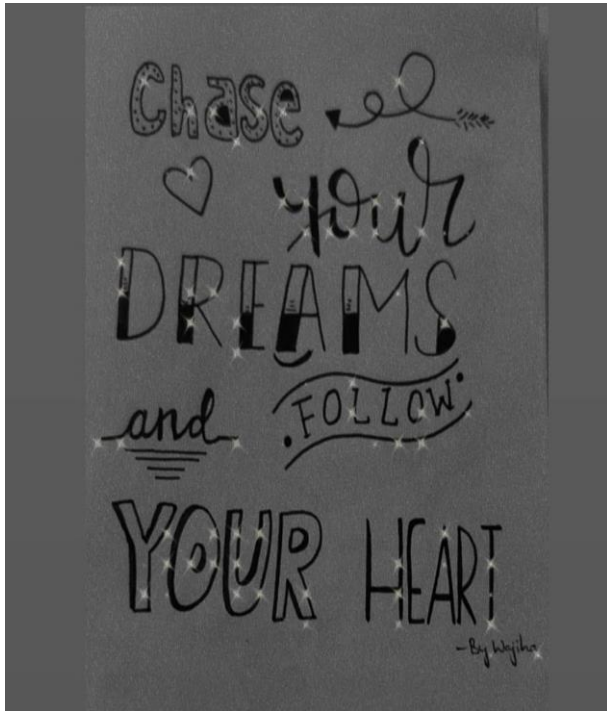 Chase
your
DREAMS
and FOLLOW
YOUR HEART
-By Wajiha